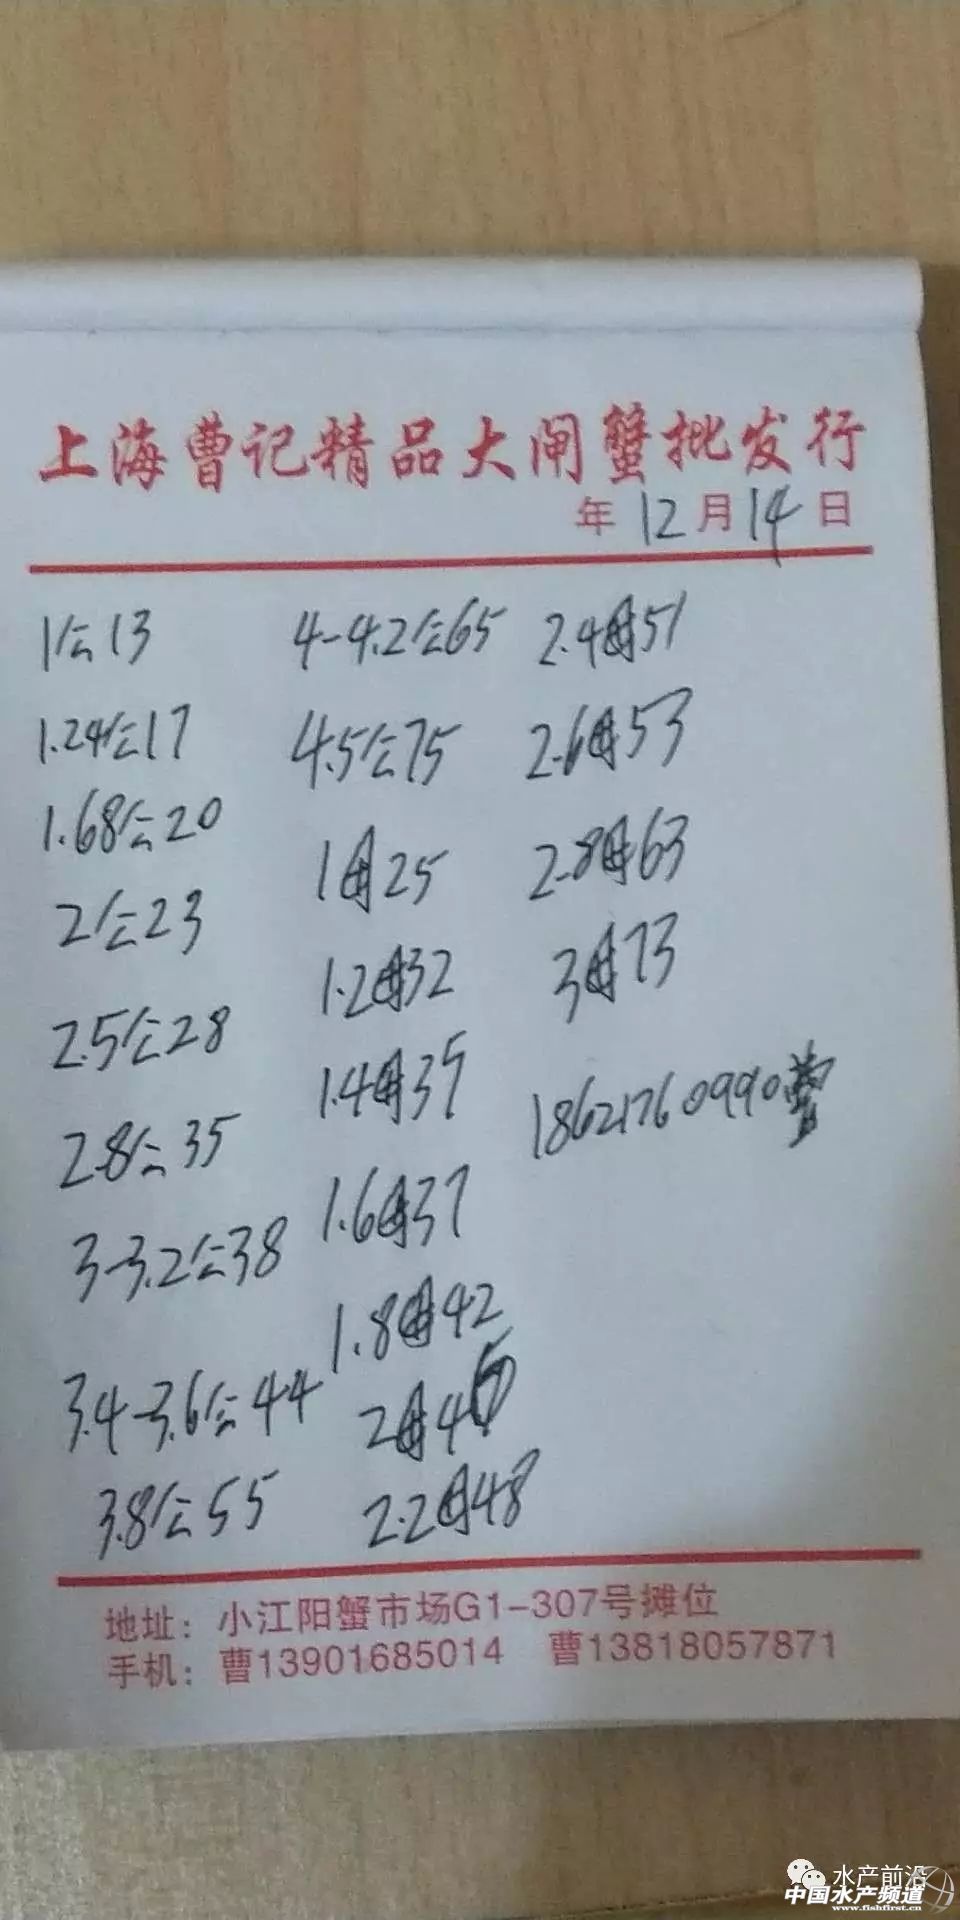 上海曹记精品大闸蟹批发行
年 12 月 14 日
1公13
1.24公17
1.68公20
2公23
2.5公28
2.8公35
3-3.2公38
3.4-3.6公44
3.8公55
4-4.2公65
4.5公75
1母25
1.2母32
1.4母35
1.6母37
1.8母42
2母45
2.2母48
2.4母51
2.6母53
2.8母63
3母73
18621760990曹
地址：小江阳蟹市场G1-307号摊位
手机：曹13901685014 曹13818057871
水产前沿
中国水产频道
www.fishfirst.cn